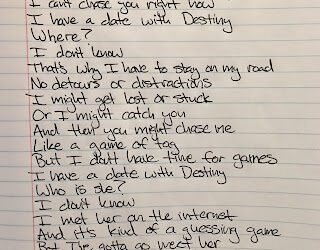 I can't chase you right now
I have a date with Destiny
Where?
I don't know
That's why I have to stay on my road
No detours or distractions
I might get lost or stuck
Or I might catch you
And then you might chase me
Like a game of tag
But I don't have time for games
I have a date with Destiny
Who is she?
I don't know
I met her on the internet
And it's kind of a guessing game
But I've gotta go meet her